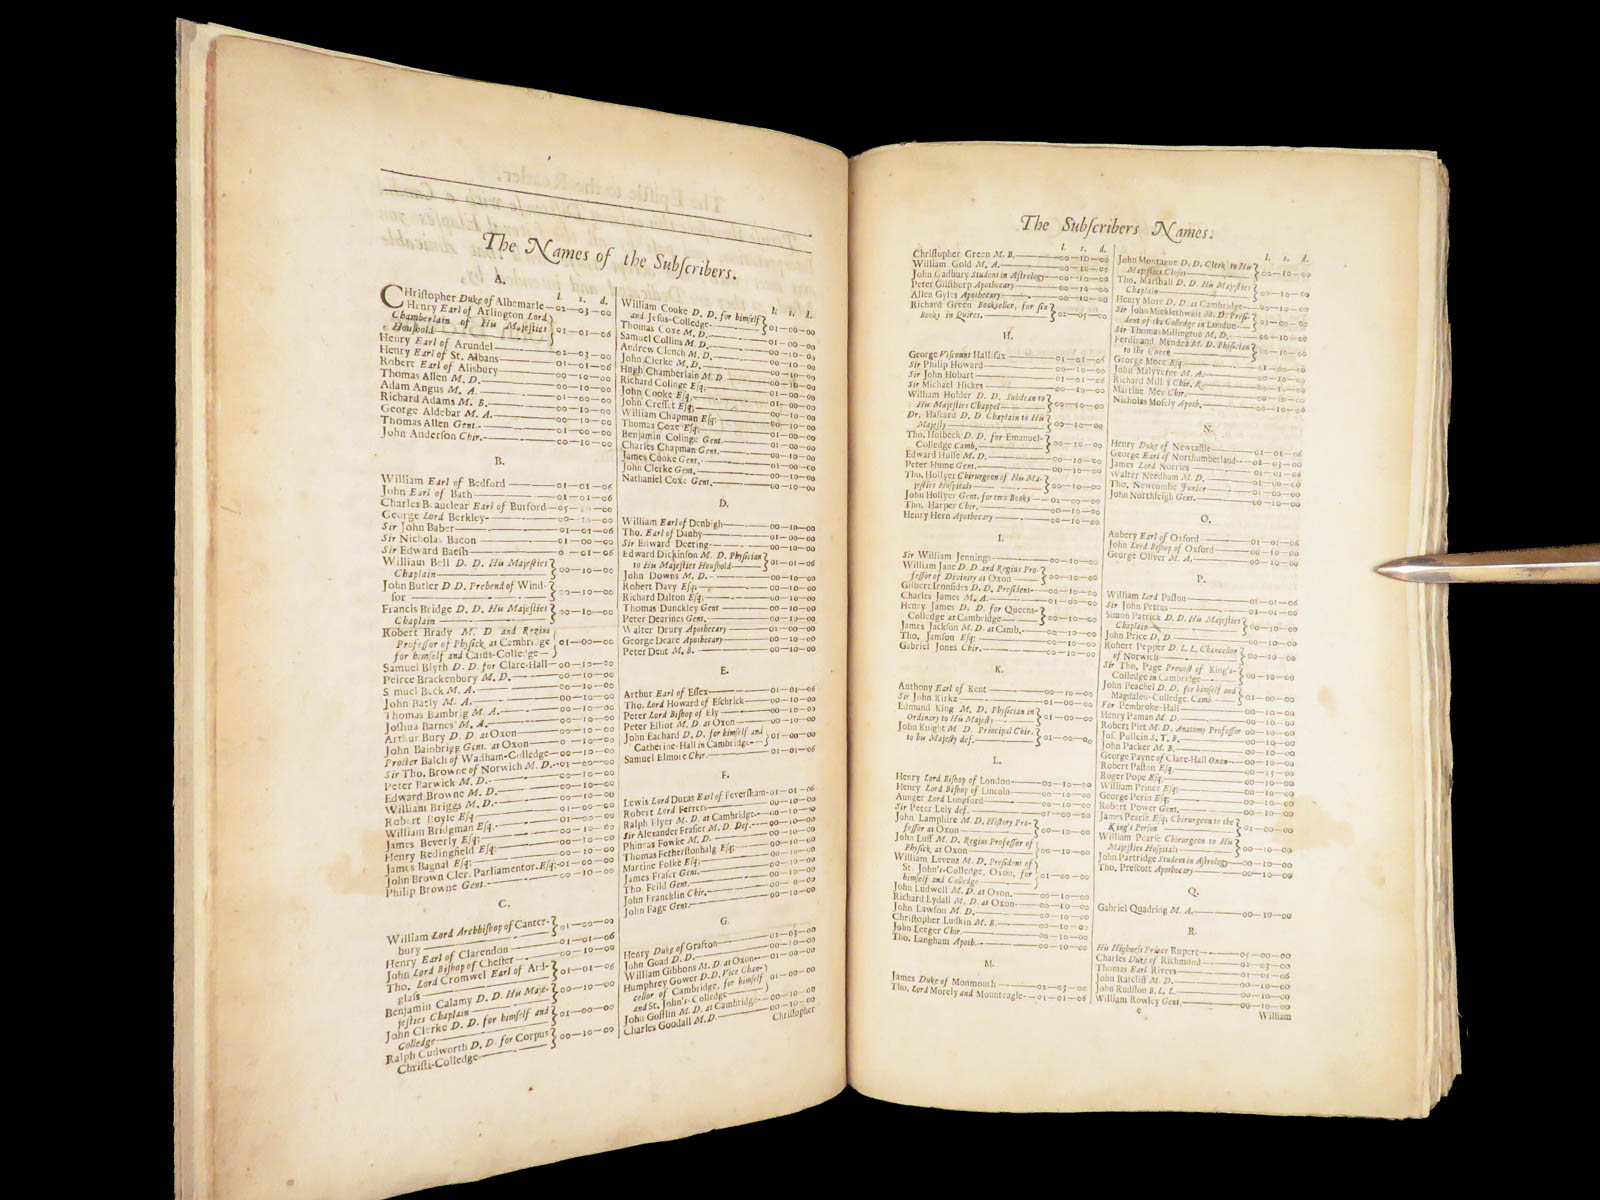 The Names of the Subſcribers.
A.
l. s. d.
CHriſtopher Duke of Albemarle—02—03—00
Henry Earl of Arlington Lord
Chamberlain of His Majeſties
Houſhold—01—01—06
Henry Earl of Arundel—02—03—00
Henry Earl of St. Albans—01—01—06
Robert Earl of Alisbury—00—10—00
Thomas Allen M. D.—00—10—00
Adam Angus M. A.—01—00—00
Richard Adams M. B.—00—10—00
George Aldebar M. A.—00—10—00
Thomas Allen Gent.—01—00—00
John Anderſon Chir.—00—10—00
B.
William Earl of Bedford—01—01—06
John Earl of Bath—01—01—06
Charles Beauclear Earl of Burford—05—00—00
George Lord Berkley—00—10—00
Sir John Baber—01—01—06
Sir Nicholas Bacon—01—00—00
Sir Edward Baeſh—01—06
William Bell D. D. His Majeſties
Chaplain—00—10—00
John Butler D. D. Prebend of Wind-
ſor—00—10—00
Francis Bridge D. D. His Majeſties
Chaplain—00—10—00
Robert Brady M. D. and Regius
Profeſſor of Phyſick at Cambridge
for himſelf and Caius-Colledge—01—00—00
Samuel Blyth D. D. for Clare-Hall—00—10—00
Peirce Brackenbury M. D.—00—10—00
Samuel Beck M. A.—00—10—00
John Bazly M. A.—00—10—00
Thomas Bambrig M. A.—00—10—00
Joſhua Barnes M. A.—00—10—00
Arthur Bury D. D. at Oxon—00—10—00
John Bainbrigg Gent. at Oxon—10—00
Procter Balch of Wadham-Colledge—00—10—00
Sir Tho. Browne of Norwich M. D.—01—00—00
Peter Barwick M. D.—00—10—00
Edward Browne M. D.—00—10—00
William Briggs M. D.—00—10—00
Robert Boyle Eſq;—01—00—00
William Bridgman Eſq;—00—10—00
James Beverly Eſq;—00—10—00
Henry Bedingfield Eſq;—00—10—00
James Bagnal Eſq;—00—10—00
John Brown Cler. Parliamentor. Eſq;—01—00—00
Philip Browne Gent.—00—10—00
C.
William Lord Archbiſhop of Canter-
bury—01—00—00
Henry Earl of Clarendon—01—01—06
John Lord Biſhop of Cheſter—00—10—00
Tho. Lord Cromwel Earl of Ard-
glaſs—01—01—06
Benjamin Calamy D. D. His Maje-
jeſties Chaplain—00—10—00
John Clerke D. D. for himſelf and
Colledge—01—00—00
Ralph Cudworth D. D. for Corpus
Chriſti-Colledge—00—10—00
l. s. d.
William Cooke D. D. for himſelf
and Jeſus-Colledge—01—00—00
Thomas Coxe M. D.—01—00—00
Samuel Collins M. D.—00—10—00
Andrew Clench M. D.—01—00—00
John Clerke M. D.—00—10—00
Hugh Chamberlain M. D.—00—10—00
Richard Colinge Eſq;—01—00—00
John Cooke Eſq;—01—00—00
John Creſſet Eſq;—01—00—00
William Chapman Eſq;—00—10—00
Thomas Coxe Eſq;—01—00—00
Benjamin Colinge Gent.—01—00—00
Charles Chapman Gent.—00—10—00
James Cooke Gent.—01—00—00
John Clerke Gent.—00—10—00
Nathaniel Coxe Gent.—00—10—00
D.
William Earl of Denbigh—00—10—00
Tho. Earl of Danby—01—00—00
Sir Edward Deering—00—10—00
Edward Dickinſon M. D. Phyſician
to His Majeſties Houſhold—01—01—06
John Downs M. D.—00—10—00
Robert Davy Eſq;—00—10—00
Richard Dalton Eſq;—00—10—00
Thomas Dunckley Gent—00—10—00
Peter Dearines Gent.—00—10—00
Walter Drury Apothecary—01—00—00
George Deare Apothecary—00—10—00
Peter Dent M. B.—00—10—00
E.
Arthur Earl of Eſſex—01—01—06
Tho. Lord Howard of Eſchrick—00—10—00
Peter Lord Biſhop of Ely—01—00—00
Peter Elliot M. D. at Oxon—00—10—00
John Eachard D. D. for himſelf and
Catherine-Hall in Cambridge—01—00—00
Samuel Elmore Chir.—01—01—06
F.
Lewis Lord Duras Earl of Feverſham—01—01—06
Robert Lord Ferrers—00—10—00
Ralph Flyer M. D. at Cambridge—00—10—00
Sir Alexander Fraſier M. D. Deſ.—00—10—00
Phineas Fowke M. D.—00—10—00
Thomas Fetherſtonhalg Eſq;—00—10—00
Martine Folke Eſq;—00—10—00
James Fraſer Gent.—00—10—00
Tho. Feild Gent.—00—10—00
John Francklin Chir.—00—10—00
John Fage Gent.—00—10—00
G.
Henry Duke of Grafton—02—03—00
John Goad D. D.—00—10—00
William Gibbons M. D. at Oxon—01—00—00
Humphrey Gower D. D. Vice Chan-
cellor of Cambridge, for himſelf
and St. John's-Colledge—01—00—00
John Goſtlin M. D. at Cambridge—00—10—00
Charles Goodall M. D.—00—10—00
Chriſtopher
The Subſcribers Names.
l. s. d.
Chriſtopher Green M. B.—00—10—00
William Gold M. A.—00—10—00
John Gadbury Student in Aſtrology—00—10—00
Peter Gilſthorp Apothecary—00—10—00
Allen Gyles Apothecary—00—10—00
Richard Green Bookſeller, for ſix
Books in Quires.—02—05—00
H.
George Viſcount Hallifax—01—01—06
Sir Philip Howard—00—10—00
Sir John Hobart—01—01—06
Sir Michael Hickes—00—10—00
William Holder D. D. Subdean to
His Majeſties Chappel—00—10—00
Dr. Haſcard D. D. Chaplain to His
Majeſty—00—10—00
Tho. Holbeck D. D. for Emanuel-
Colledge Camb.—00—10—00
Edward Hulſe M. D.—00—10—00
Peter Hume Gent.—00—10—00
Tho. Hollyer Chirurgeon of His Ma-
jeſties Hoſpitals—00—10—00
John Hollyer Gent. for two Books—01—00—00
Tho. Harper Chir.—00—10—00
Henry Hern Apothecary—00—10—00
I.
Sir William Jennings—00—10—00
William Jane D. D. and Regius Pro-
feſſor of Divinity at Oxon—00—10—00
Gilbert Ironſides D. D. Preſident—00—10—00
Charles James M. A.—01—00—00
Henry James D. D. for Queens-
Colledge at Cambridge—00—10—00
James Jackſon M. D. at Camb.—00—10—00
Tho. Jamſon Eſq;—00—10—00
Gabriel Jones Chir.—00—10—00
K.
Anthony Earl of Kent—00—10—00
Sir John Kirke—00—10—00
Edmund King M. D. Phyſician in
Ordinary to His Majeſty—01—00—00
John Knight M. D. Principal Chir.
to his Majeſty deſ.—01—00—00
L.
Henry Lord Biſhop of London—00—10—00
Henry Lord Biſhop of Lincoln—00—10—00
Aunger Lord Longford—00—10—00
Sir Peter Lely deſ.—01—00—00
John Lamphire M. D. Hiſtory Pro-
feſſor at Oxon—00—10—00
John Luff M. D. Regius Profeſſor of
Phyſick at Oxon—00—10—00
William Levenz M. D. Preſident of
St. John's-Colledge, Oxon, for
himſelf and Colledge—01—00—00
John Ludwell M. D. at Oxon.—00—10—00
Richard Lydall M. D. at Oxon—00—10—00
John Lawſon M. D.—00—10—00
Chriſtopher Ludkin M. B.—00—10—00
John Leeger Chir.—00—10—00
Tho. Langham Apoth.—00—10—00
M.
James Duke of Monmouth—02—03—00
Tho. Lord Morely and Mounteagle—01—01—06
l. s. d.
John Montague D. D. Clerk to His
Majeſties Cloſet—00—10—00
Tho. Marſhall D. D. His Majeſties
Chaplain—00—10—00
Henry More D. D. at Cambridge—00—10—00
Sir John Micklethwait M. D. Preſi-
dent of the Colledge in London—01—00—00
Sir Thomas Millington M. D.—00—10—00
Ferdinand Mendez M. D. Phyſician
to the Queen—00—10—00
George More Eſq;—01—00—00
John Malyverer M. A.—00—10—00
Richard Mill Chir. R.
Matthe Mey Chir.—00—10—00
Nicholas Moſely Apoth.—00—10—00
N.
Henry Duke of Newcaſtle—01—01—06
George Earl of Northumberland—01—03—00
James Lord Norries—01—01—06
Walter Needham M. D.—01—00—00
Tho. Newcombe Junior—01—00—00
John Northleigh Gent.—00—10—00
O.
Aubery Earl of Oxford—01—01—06
John Lord Biſhop of Oxford—00—10—00
George Oliver M. A.—00—10—00
P.
William Lord Paſton—01—01—06
Sir John Pettus—01—01—06
Simon Patrick D. D. His Majeſties
Chaplain—00—10—00
John Price D. D.
Robert Pepper D. L. L. Chancellor
of Norwich—00—10—00
Sir Tho. Page Provoſt of King's-
Colledge in Cambridge—00—10—00
John Peachel D. D. for himſelf and
Magdalen-Colledge Camb.—01—00—00
For Pembroke-Hall—00—10—00
Henry Paman M. D.—00—10—00
Robert Pitt M. D. Anatomy Profeſſor—00—10—00
Joſ. Pullein S. T. B.—00—10—00
John Packer M. B.—00—10—00
George Payne of Clare-Hall Oxon—00—10—00
Robert Paſton Eſq;—00—15—00
Roger Pope Eſq;—00—10—00
William Prince Eſq;—00—10—00
George Perin Eſq;—00—10—00
Robert Power Gent.—00—10—00
James Pearſe Eſq; Chirurgeon to the
King's Perſon—01—00—00
William Pearſe Chirurgeon to His
Majeſties Hoſpitals—00—10—00
John Partridge Student in Aſtrology—00—10—00
Tho. Preſcott Apothecary—00—10—00
Q.
Gabriel Quadring M. A.—00—10—00
R.
His Highneſs Prince Rupert—05—00—00
Charles Duke of Richmond—02—03—00
Thomas Earl Rivers—01—01—06
John Ratcliff M. D.—00—10—00
John Rudſton B. L. L.—00—10—00
William Rowley Gent.—00—10—00
e
William